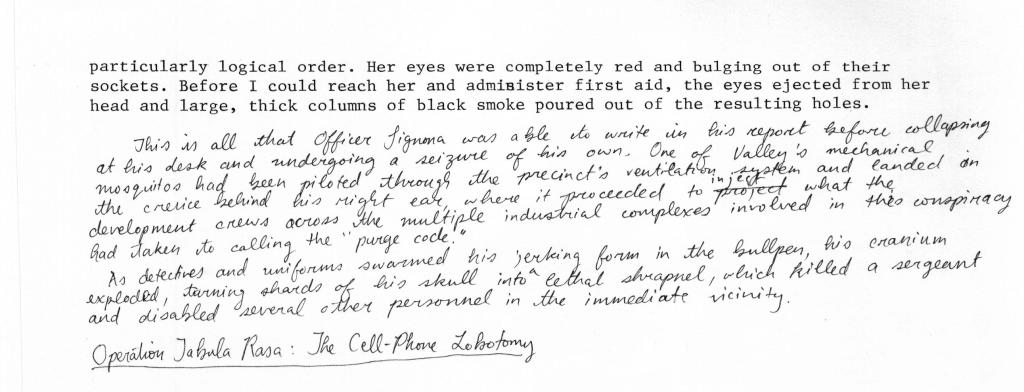 particularly logical order. Her eyes were completely red and bulging out of their
sockets. Before I could reach her and administer first aid, the eyes ejected from her
head and large, thick columns of black smoke poured out of the resulting holes.
This is all that Officer Signoma was able to write in his report before collapsing
at his desk and undergoing a seizure of his own. One of Valley's mechanical
mosquitos had been piloted through the precinct's ventilation system and landed in
the crevice behind his right ear, where it proceeded to project inject what the
development crews across the multiple industrial complexes involved in this conspiracy
had taken to calling the "purge code."
As detectives and uniforms swarmed his jerking form in the bullpen, his cranium
exploded, turning shards of his skull into a lethal shrapnel, which killed a sergeant
and disabled several other personnel in the immediate vicinity.
Operation Tabula Rasa: The Cell-Phone Lobotomy